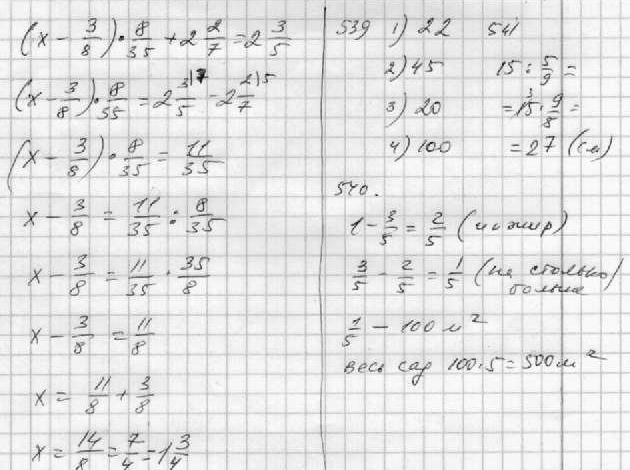 (x - 3/8) · 8/35 + 2 2/7 = 2 3/5
(x - 3/8) · 8/35 = 2 3/5 |7 - 2 2/7 |5
(x - 3/8) · 8/35 = 11/35
x - 3/8 = 11/35 : 8/35
x - 3/8 = 11/35 · 35/8
x - 3/8 = 11/8
x = 11/8 + 3/8
x = 14/8 = 7/4 = 1 3/4
539 1) 22
2) 45
3) 20
4) 100
541
15 : 5/9 =
= 15 3 · 9/8 =
= 27 (см)
540.
1 - 3/5 = 2/5 (инжир)
3/5 - 2/5 = 1/5 (на столько
больше)
1/5 - 100 м²
весь сад 100·5 = 500 м²